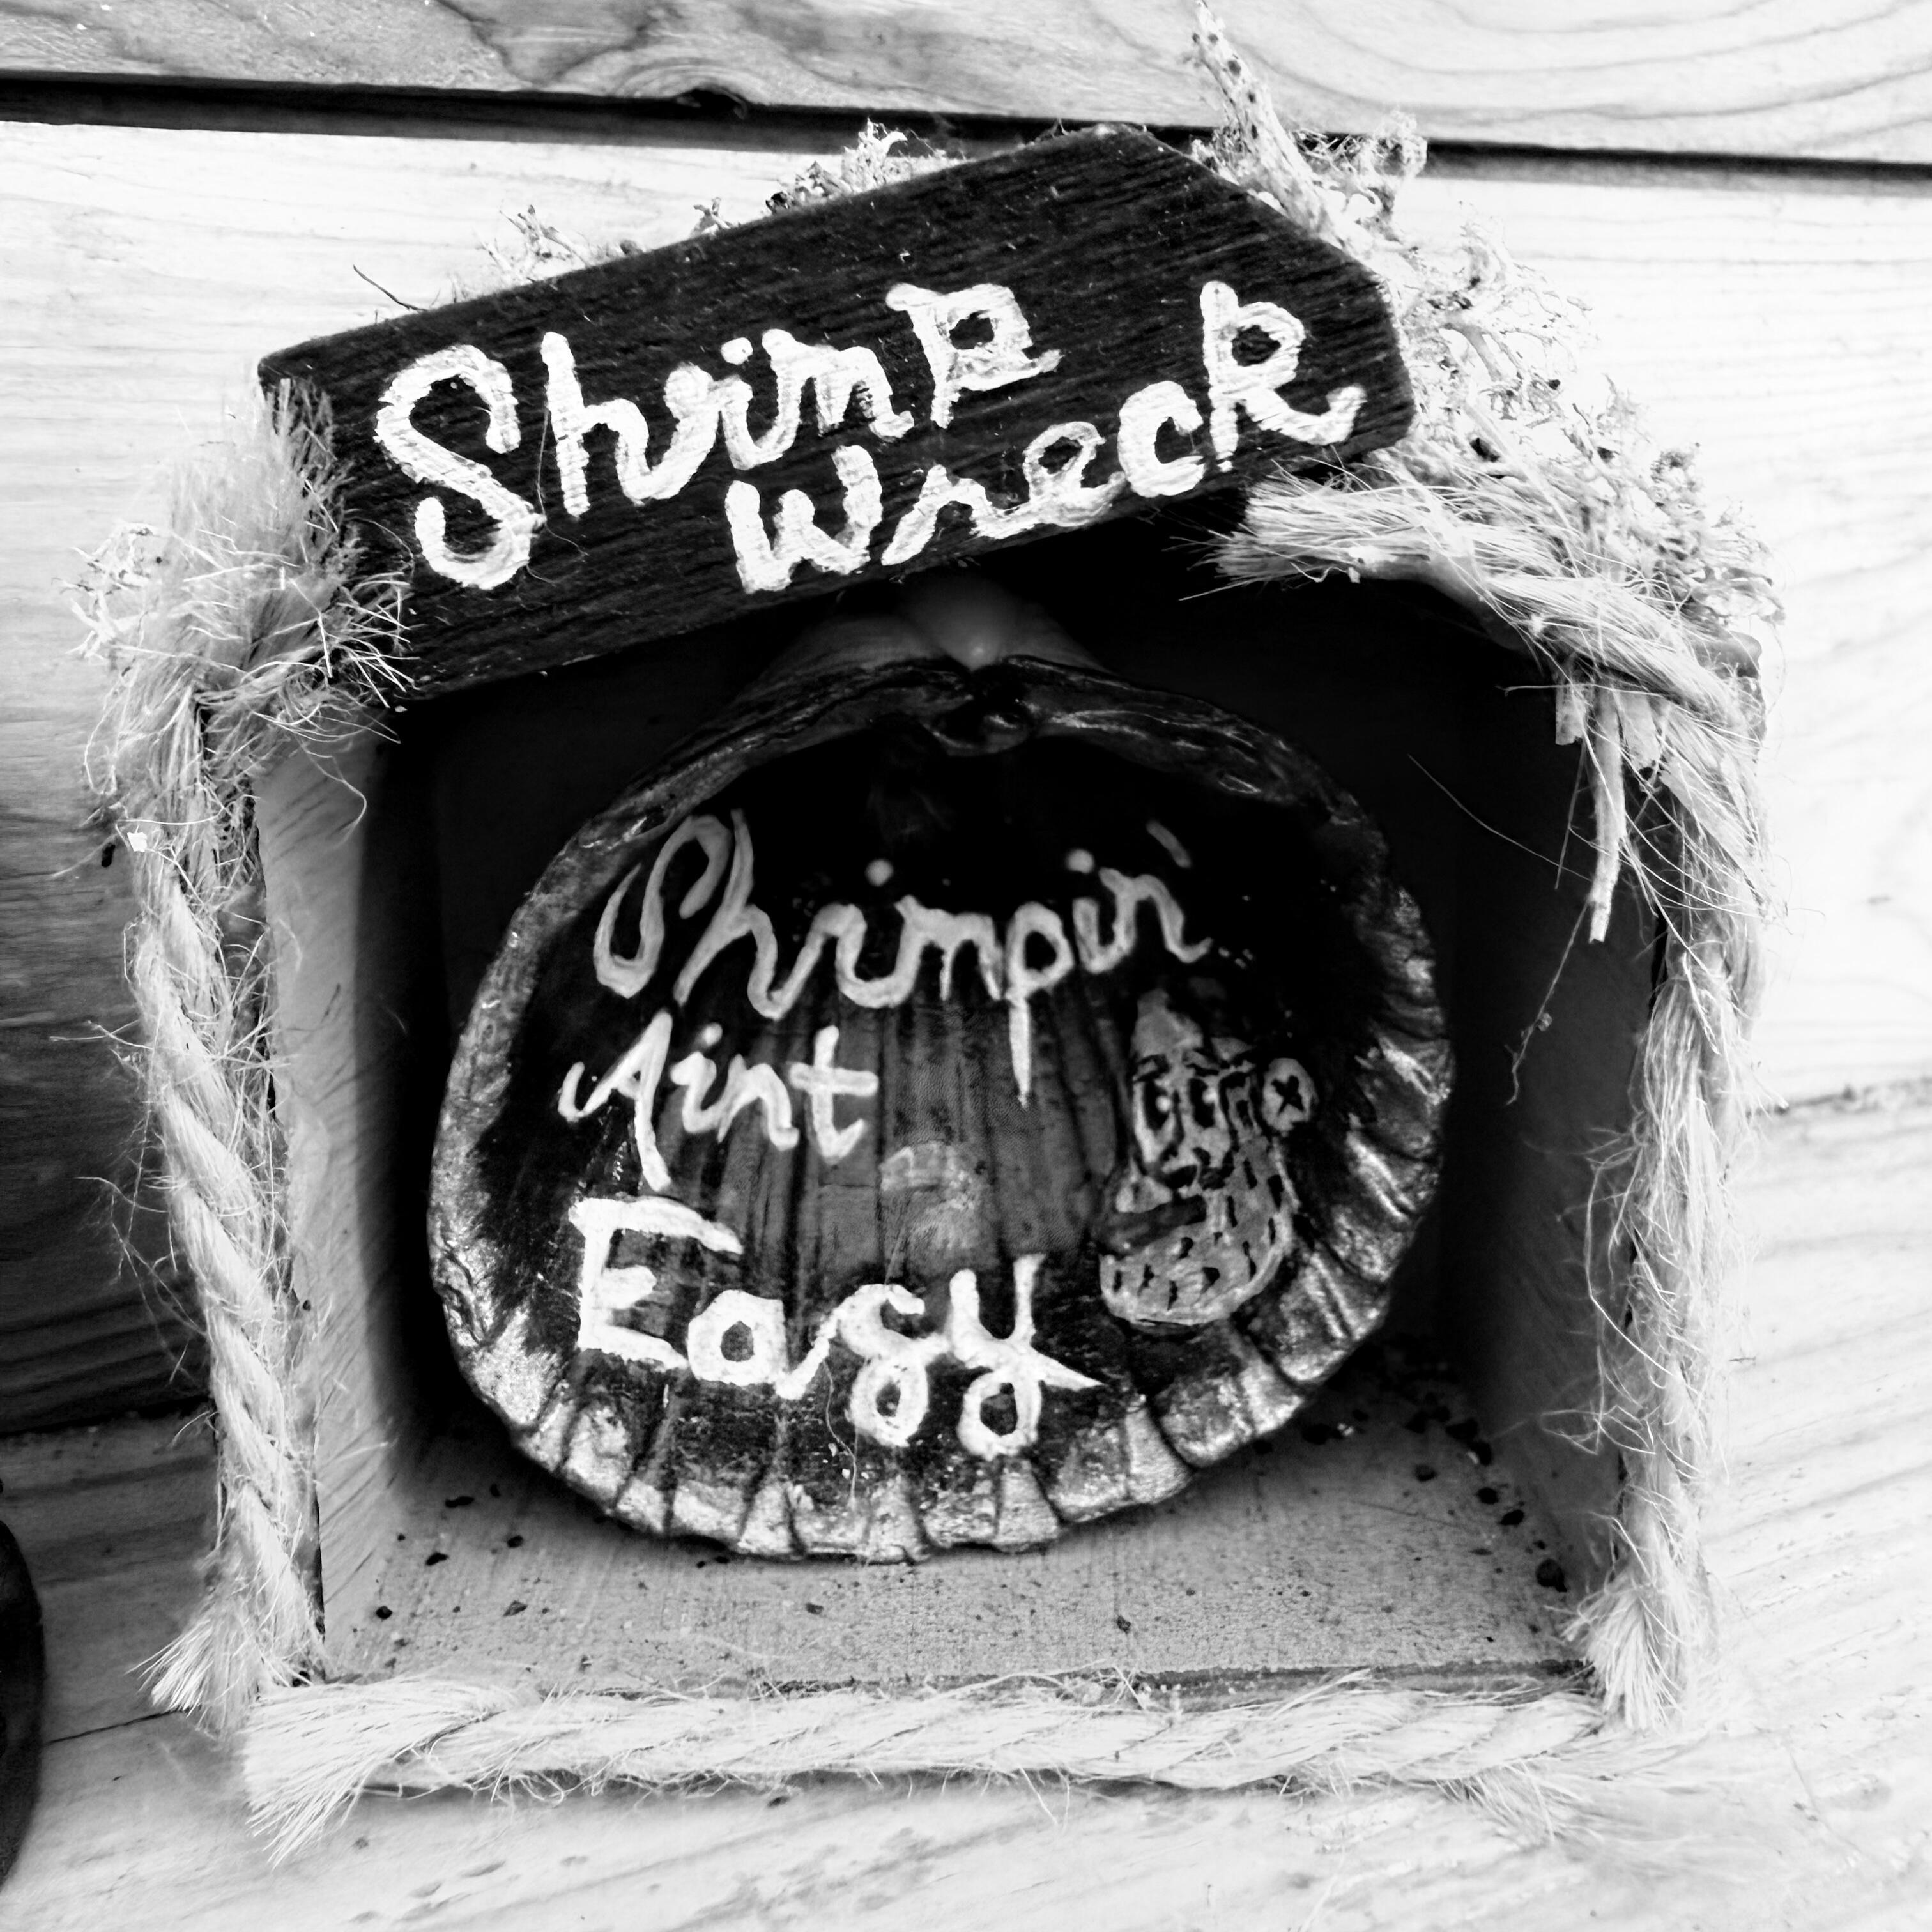 Shrimp
Wreck
Shrimpin'
Aint
Easy